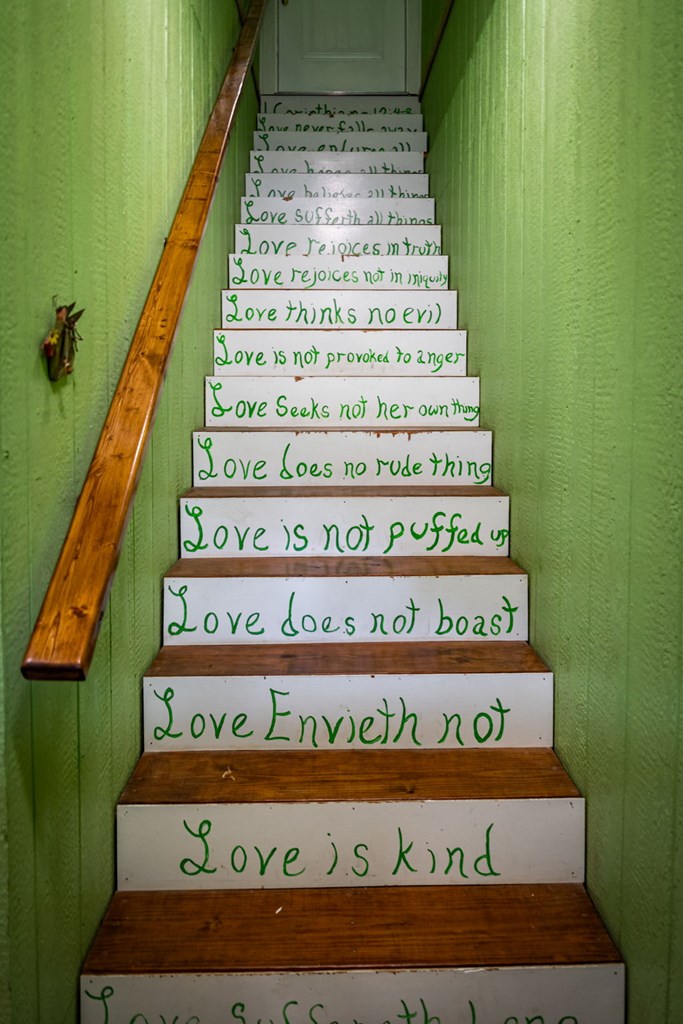 1 Corinthians
Love never falls away
Love endures all
Love hopes all things
Love believes all things
Love sufferth all things
Love rejoices in truth
Love rejoices not in iniquity
Love thinks no evil
Love is not provoked to anger
Love Seeks not her own thing
Love does no rude thing
Love is not puffed up
Love does not boast
Love Envieth not
Love is kind
Love Suffereth Long